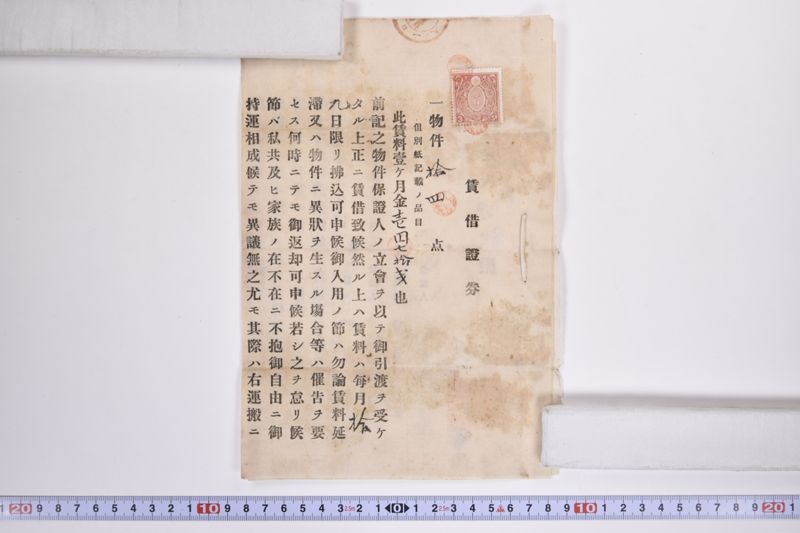 賃借證券
一物件拾四点
但別紙記載ノ品目
此賃料壹ケ月金壱円七拾銭也
前記之物件保證人ノ立會ヲ以テ御引渡ヲ受ケ
タル上正ニ賃借致候然ル上ハ賃料ハ毎月拾
九日限リ拂込可申候御入用ノ節ハ勿論賃料延
滯又ハ物件ニ異狀ヲ生スル場合等ハ催告ヲ要
セス何時ニテモ御返却可申候若シ之ヲ怠リ候
節バ私共及ヒ家族ノ在不在ニ不抱御自由ニ御
持運相成候テモ異議無之尤モ其際ハ右運搬ニ
1 20 9 8 7 6 5 4 3 2 1 10 9 8 7 6 5 4 3 2.5m 2 1 0 1 2 2.5m 3 4 5 6 7 8 9 10 1 2 3 4 5 6 7 8 9 20 1